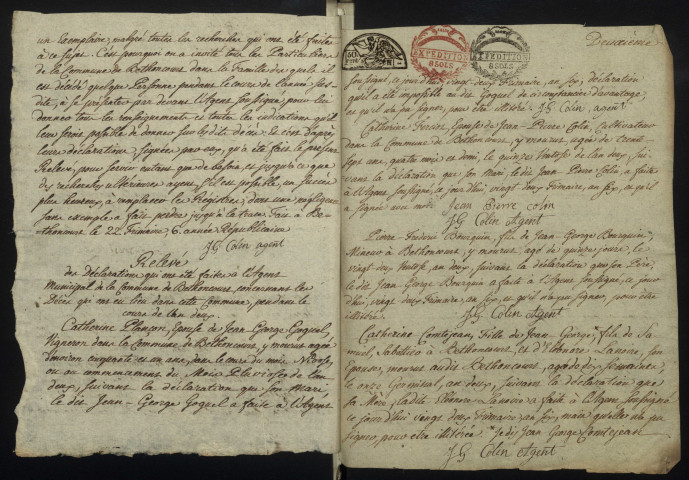 un Exemplaire, malgré toutes les recherches qui ont été faites
à ce sujet. C'est pourquoi on a invité tous les Particuliers
de la Commune de Bethoncourt dans la Famille des quels il
est décédé quelque Personne pendant le cours de l'année sus-
dite, à se présenter par devant l'Agent soussigné, pour lui
donner tous les renseignements et toutes les indications qu'il
leur seroit possible de donner sur les dits décès. C'est d'après
leurs déclarations, signées par eux, qu'a été fait le présent
Relevé, pour servir autant que de besoin et jusqu'à ce que
des recherches ultérieures ayent, s'il est possible, un succès
plus heureux, à remplacer les Registres, dont une négligence
sans exemple a fait perdre jusqu'à la trace. Fait à Be-
thoncourt le 22. Frimaire, 6. année Républicaine
JG Colin agent
Relevé
des Déclarations qui ont été faites à l'Agent
Municipal de la Commune de Bethoncourt, concernant les
Décès qui ont eu lieu dans cette Commune, pendant le
cours de l'an deux.
Catherine Plançon, Epouse de Jean-George Goguel,
Vigneron dans la Commune de Bethoncourt, y mourut agée
d'environ cinquante et un ans, dans le cours du mois Nivose,
ou au commencement du Mois Pluviose de l'an
deux, suivant la déclaration que son Mari,
le dit Jean-George Goguel a faite à l'Agent
Deuxième
EXPEDITION
8 SOLS
EXPEDITION
8 SOLS
soussigné, ce jourd'hui vingt-deux Frimaire, an six, déclaration
qu'il a été impossible au dit Goguel de circonstancier d'avantage,
et qu'il n'a pu signer, pour être illitéré. JG Colin agent
Catherine Ferciot, Epouse de Jean-Pierre Colin, Cultivateur
dans la Commune de Bethoncourt, y mourut, agée de trente
sept ans, quatre mois et demi, le quinze Ventose de l'an deux, sui-
vant la déclaration que son Mari, le dit Jean-Pierre Colin, a faite
à l'Agent soussigné, ce jourd'hui vingt deux Frimaire, an six, et qu'il
a signée avec moi. Jean Pierre Colin
JG Colin Agent
Pierre-Frédéric Bourquin, fils de Jean-George Bourquin,
Mineur à Bethoncourt, y mourut, agé de quinze jours, le
vingt-deux Ventose, an deux, suivant la déclaration que son Père,
le dit Jean-George Bourquin a faite à l'Agent soussigné, ce jour
d'hui, vingt-deux Frimaire, an six, et qu'il n'a pu signer, pour être
illitéré. JG Colin Agent
Catherine Comtejean, Fille de Jean-George, fils de Sa-
muel, à Bethoncourt, et d'Eléonore son
Epouse, mourut audit Bethoncourt, agée de deux semaines,
le onze Germinal, an deux, suivant la déclaration que
sa Mère, ladite Eléonore a faite à l'Agent soussigné
ce jourd'hui vingt deux Frimaire an six, mais qu'elle n'a pu
signer, pour être illitérée. Jean George Comtejean
JG Colin Agent